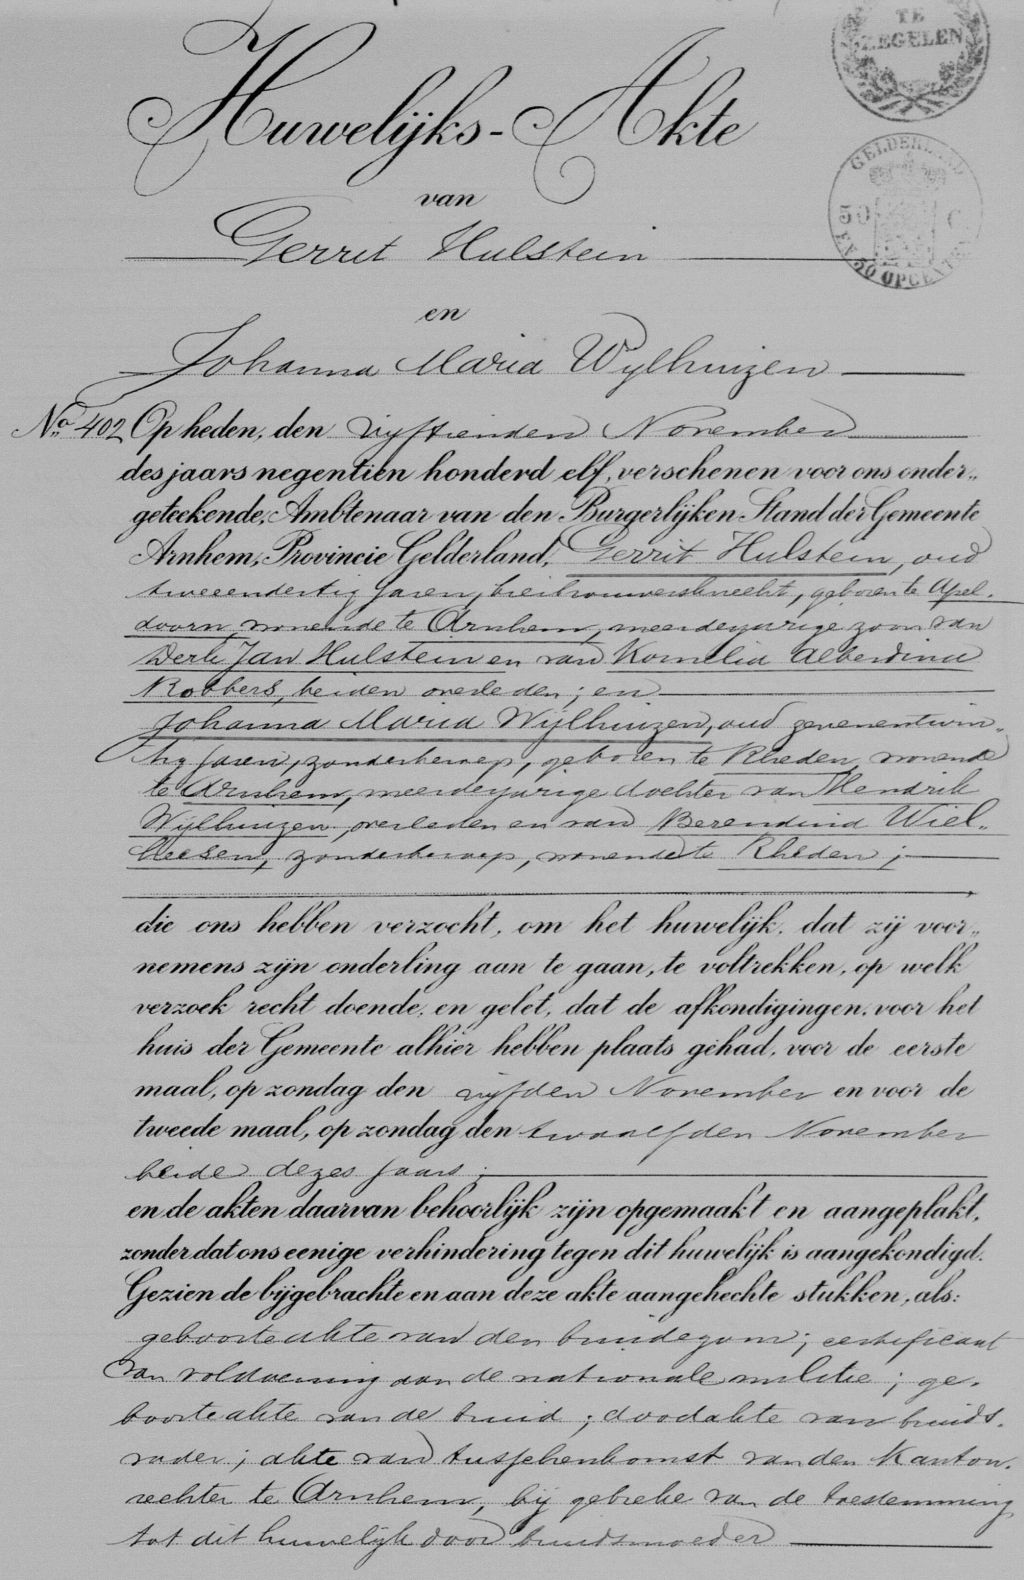 TE
ZEGELEN
Huwelijks-Akte
GELDERLAND
50 C
EN 50 OPCENTEN
van
Gerrit Hulstein
en
Johanna Maria Wijlhuizen
No. 402 Op heden, den vijftienden November
des jaars negentien honderd elf, verschenen voor ons onder„
geteekende, Ambtenaar van den Burgerlijken Stand der Gemeente
Arnhem, Provincie Gelderland, Gerrit Hulstein, oud
tweeendertig jaren, bierbrouwersknecht, geboren te Apel-
doorn, wonende te Arnhem, meerderjarige zoon van
Derk Jan Hulstein en van Kornelia Alberdina
Robbers, beiden overleden; en
Johanna Maria Wijlhuizen, oud zevenentwin„
tig jaren, zonder beroep, geboren te Rheden, wonende
te Arnhem, meerderjarige dochter van Hendrik
Wijlhuizen, overleden en van Berendina Wiel„
heesen, zonder beroep, wonende te Rheden;
die ons hebben verzocht, om het huwelijk, dat zij voor„
nemens zijn onderling aan te gaan, te voltrekken, op welk
verzoek recht doende, en gelet, dat de afkondigingen, voor het
huis der Gemeente alhier hebben plaats gehad, voor de eerste
maal, op zondag den vijfden November en voor de
tweede maal, op zondag den twaalfden November
beide dezes jaars;
en de akten daarvan behoorlijk zijn opgemaakt en aangeplakt,
zonder dat ons eenige verhindering tegen dit huwelijk is aangekondigd.
Gezien de bijgebrachte en aan deze akte aangehechte stukken, als:
geboorteakte van den bruidegom; certificaat
van voldoening aan de nationale militie; ge-
boorteakte van de bruid; doodakte van bruids-
vader; akte van tusschenkomst van den Kanton-
rechter te Arnhem, bij gebreke van de toestemming
tot dit huwelijk door bruidsmoeder